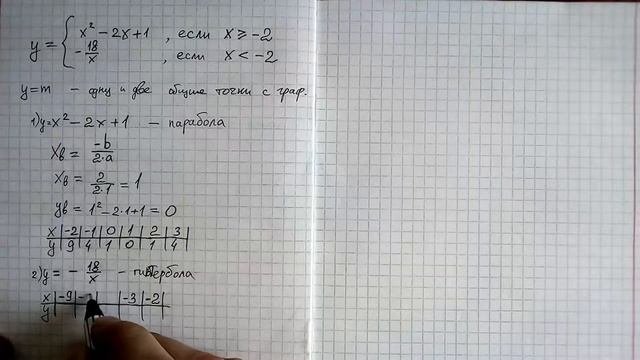 y = { x² - 2x + 1 , если x ≥ -2
-18/x , если x < -2
y = m - одну и две общие точки с граф.
1) y = x² - 2x + 1 - парабола
xв = -b/2·a
xв = 2/2·1 = 1
yв = 1² - 2·1 + 1 = 0
x | -2 | -1 | 0 | 1 | 2 | 3
y | 9 | 4 | 1 | 0 | 1 | 4
2) y = - 18/x - гипербола
x | -9 | - | | -3 | -2 |
y